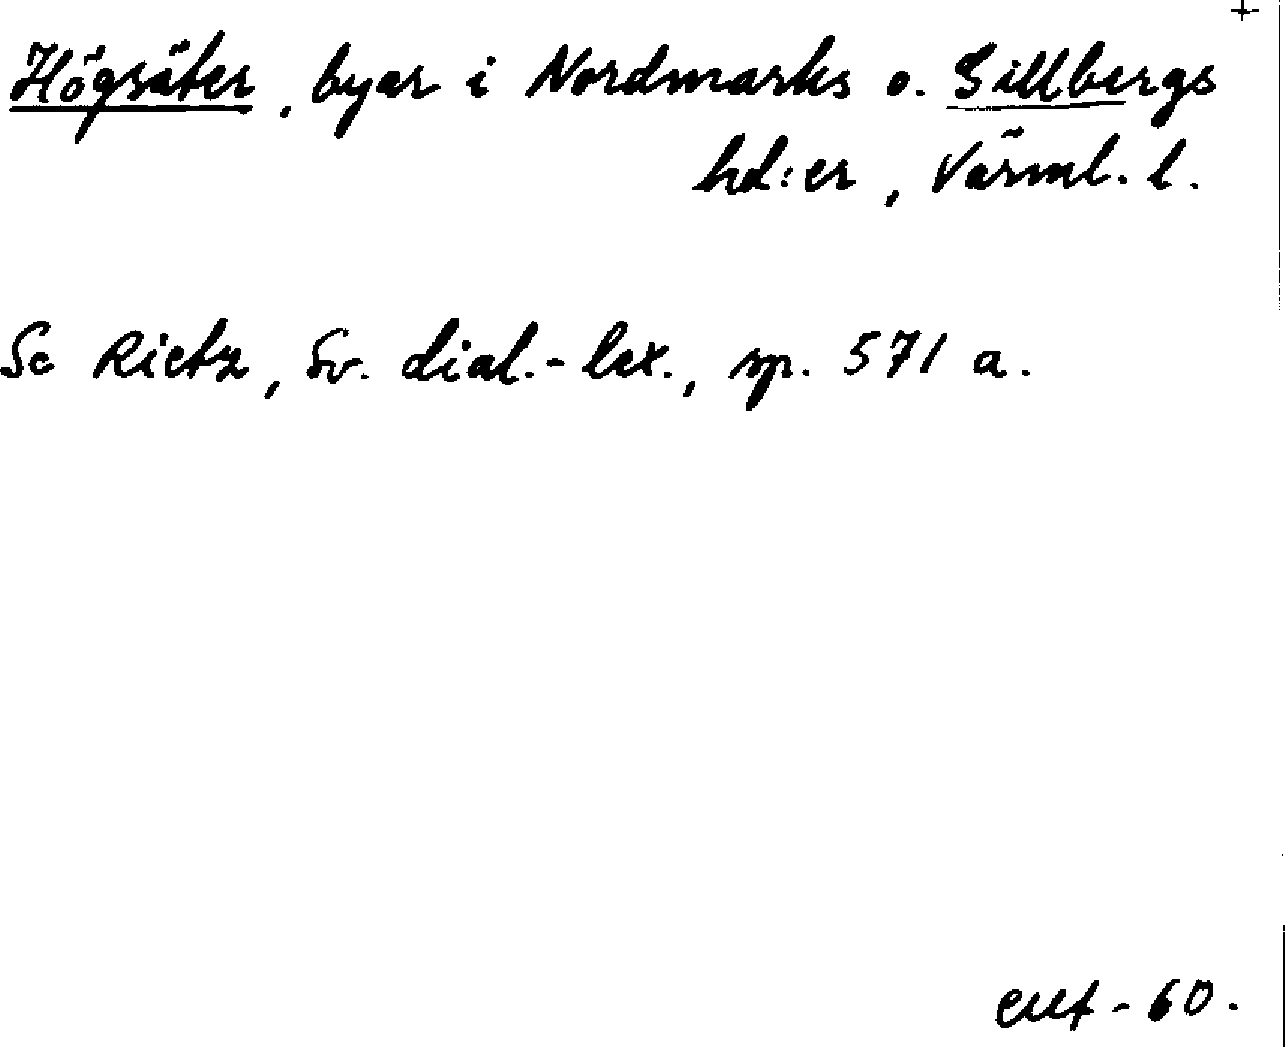 +
Högsäter, byar i Nordmarks o. Gillbergs
hd:er, Värml. l.
Se Rietz, Sv. dial.-lex., sp. 571 a.
-60.